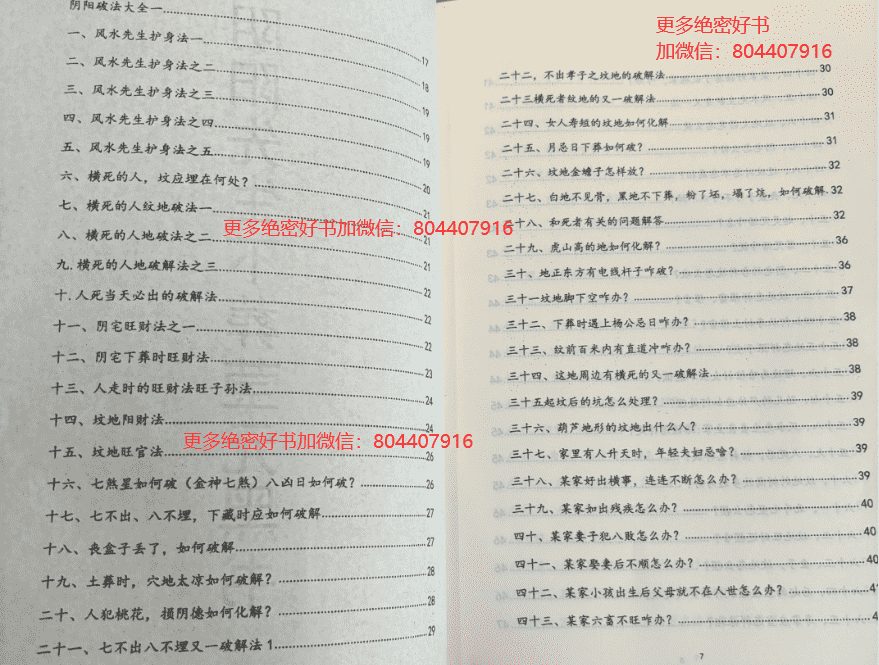 阴阳破法大全一
一、风水先生护身法一 17
二、风水先生护身法之二 18
三、风水先生护身法之三 19
四、风水先生护身法之四 19
五、风水先生护身法之五 19
六、横死的人，坟应埋在何处？ 20
七、横死的人纹地破法一 21
更多绝密好书加微信：804407916
八、横死的人地破法之二 21
九.横死的人地破解法之三 21
十.人死当天必出的破解法 22
十一、阴宅旺财法之一 22
十二、阴宅下葬时旺财法 23
十三、人走时的旺财法旺子孙法 24
十四、坟地阳财法 24
更多绝密好书加微信：804407916
十五、坟地旺官法 26
十六、七煞星如何破（金神七煞）八凶日如何破？ 26
十七、七不出、八不埋，下藏时应如何破解 27
十八、丧盒子丢了，如何破解 27
十九、土葬时，穴地太凉如何破解？ 28
二十、人犯桃花，损阴德如何化解？ 28
二十一、七不出八不埋又一破解法1 29
更多绝密好书
加微信：804407916
二十二，不出孝子之坟地的破解法 30
二十三横死者纹地的又一破解法 30
二十四、女人寿短的坟地如何化解 31
二十五、月忌日下葬如何破？ 31
二十六、坟地金蟾子怎样放？ 32
二十七、白地不见骨，黑地不下葬，粉了坯，塌了坑，如何破解.32
二十八、和死者有关的问题解答 32
二十九、虎山高的地如何化解？ 36
三十、地正东方有电线杆子咋破？ 36
三十一坟地脚下空咋办？ 37
三十二、下葬时遇上杨公忌日咋办？ 38
三十三、纹前百米内有直道冲咋办？ 38
三十四、这地周边有横死的又一破解法 38
三十五起坟后的坑怎么处理？ 39
三十六、葫芦地形的坟地出什么人？ 39
三十七、家里有人升天时，年轻夫妇忌啥？ 39
三十八、某家好出横事，连连不断怎么办？ 39
三十九、某家如出残疾怎么办？ 40
四十、某家妻子犯八败怎么办？ 40
四十一、某家娶妻后不顺怎么办？ 40
四十二、某家小孩出生后父母就不在人世怎么办？
四十三、某家六畜不旺咋办？
7